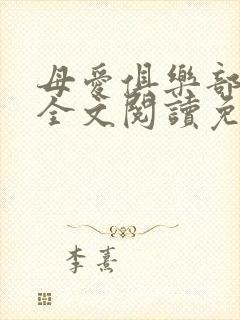 母愛俱樂部
全文閱讀免
李熹